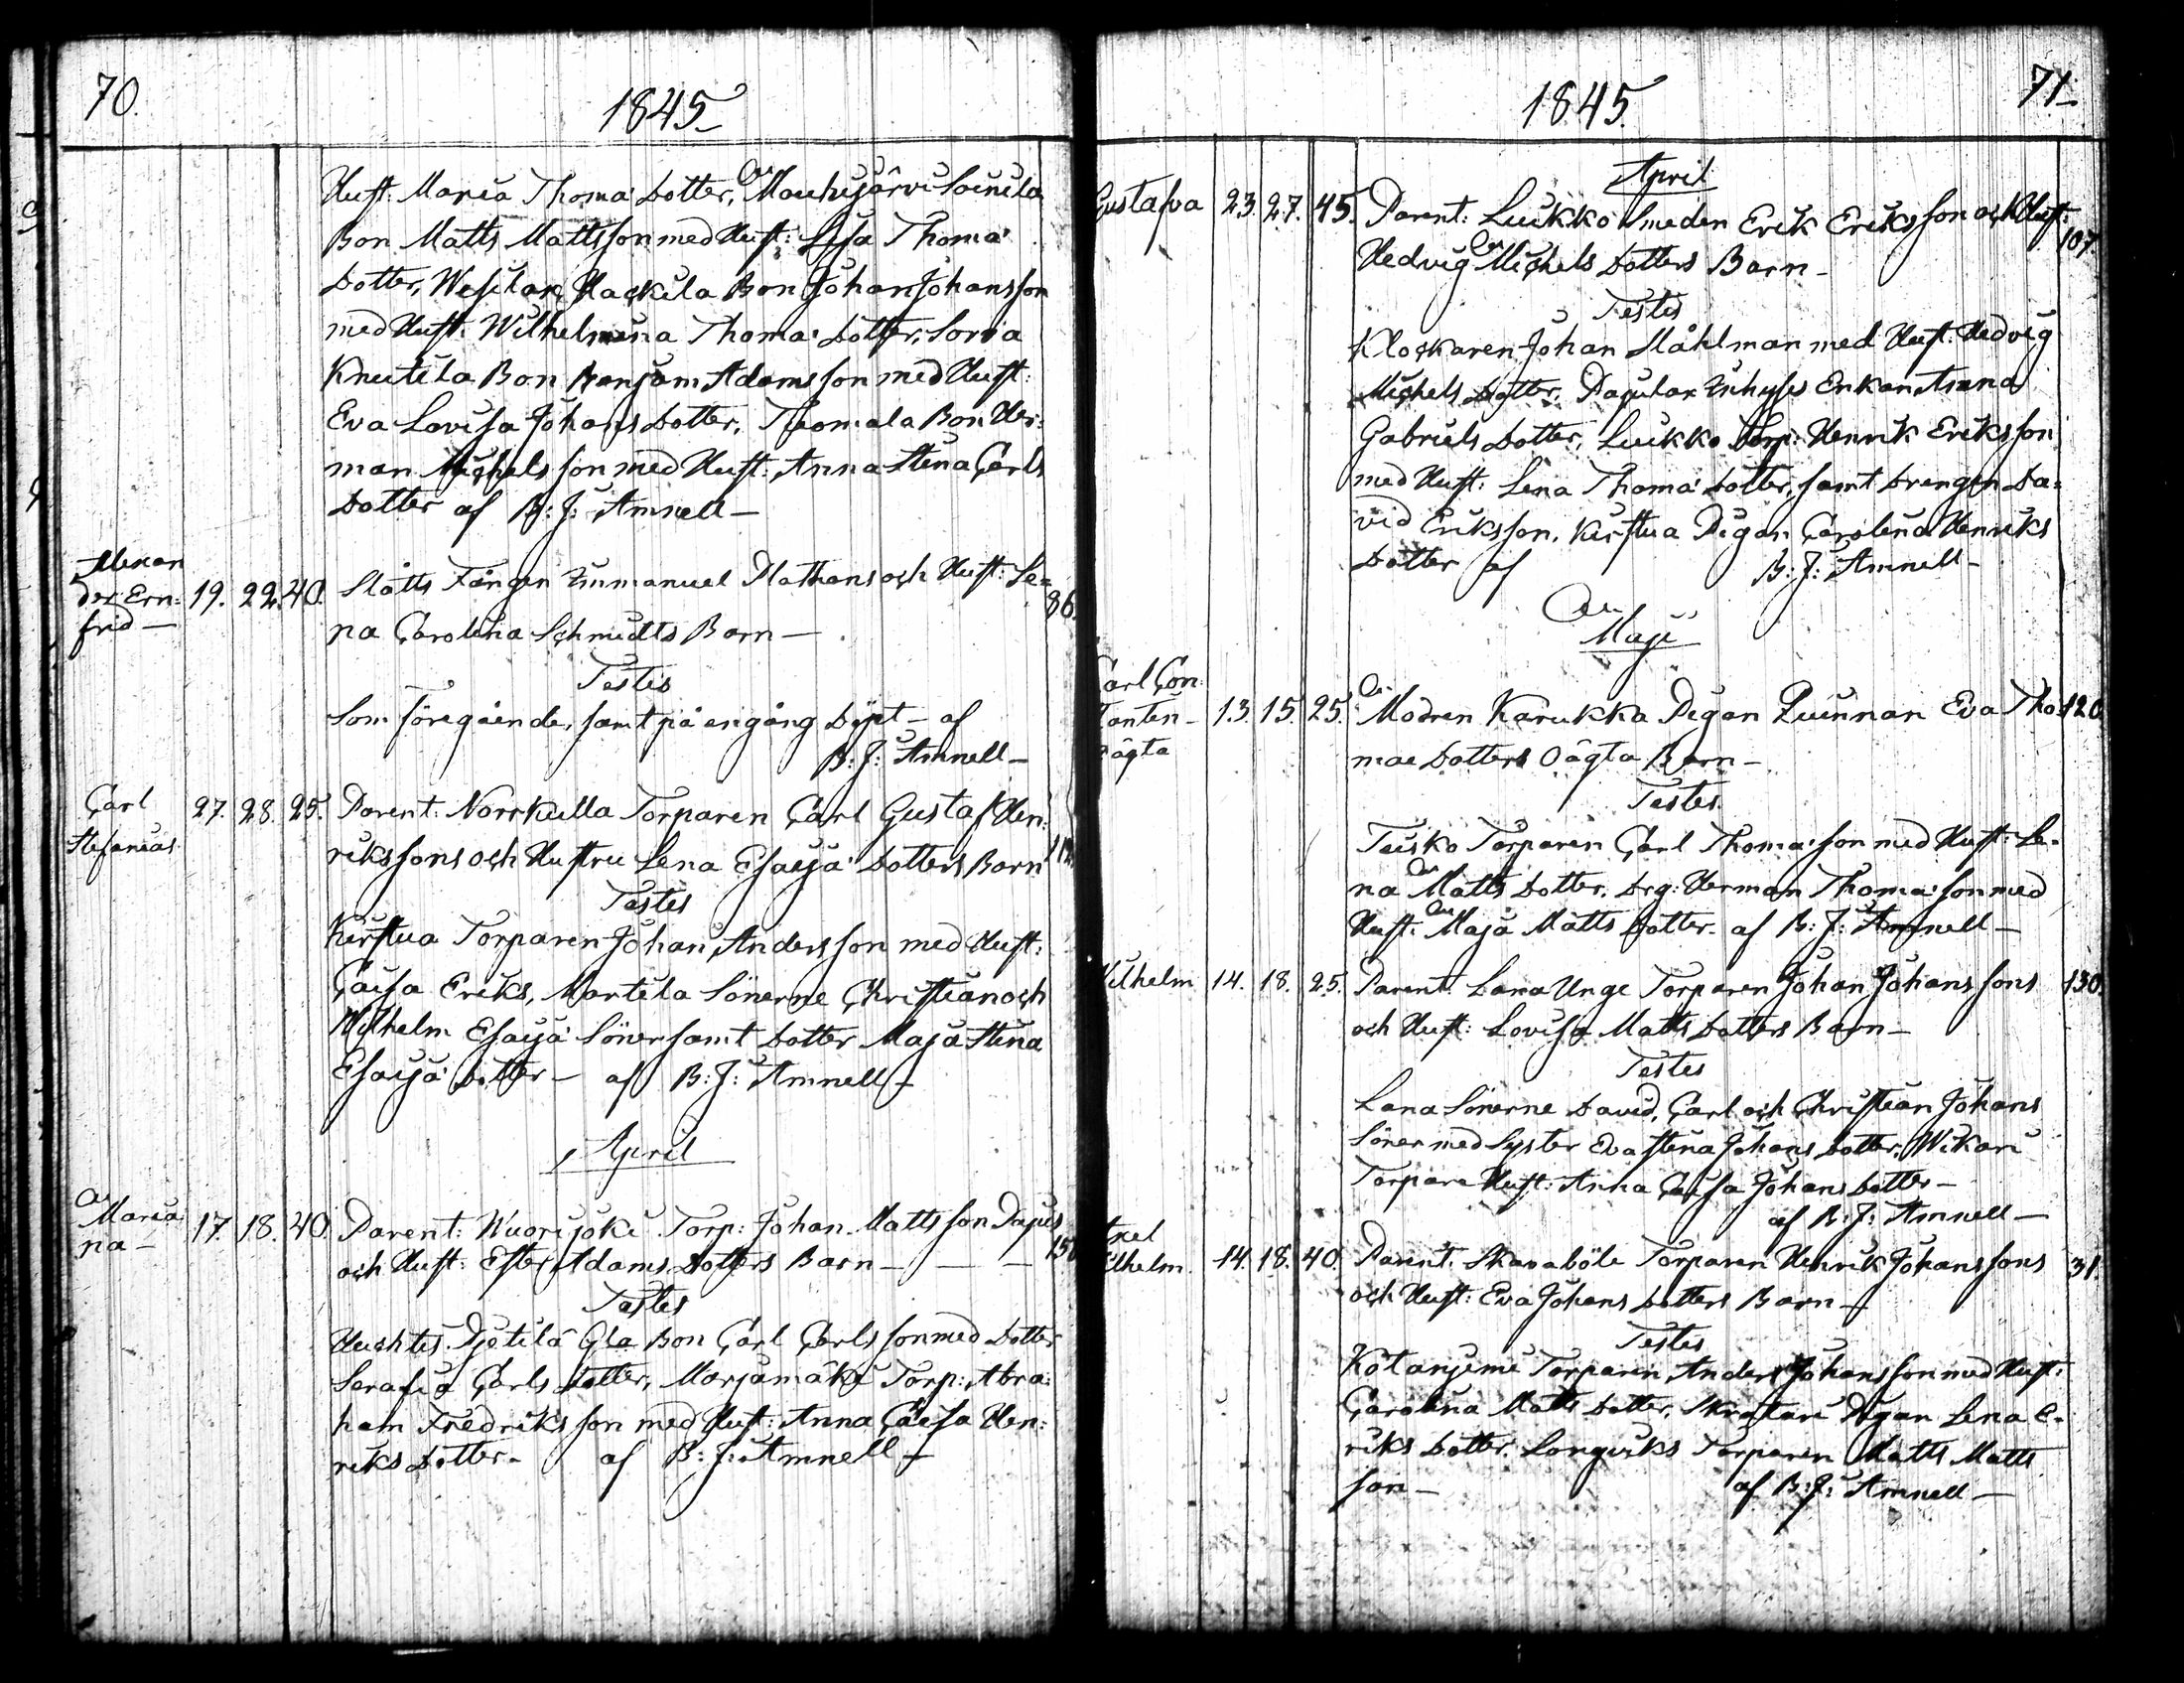 70.
1845
Hust: Maria Thomæ Dotter, Mauhijärvi Soinila
Bon Matts Mattsson med Hust: Lisa Thomæ
Dotter, Wesilax Hackila Bon Johan Johansson
med Hust: Wilhelmina Thomæ Dotter, Sorva
Knutila Bon Benjam Adamsson med Hust:
Eva Lovisa Johans Dotter, Thomala Bon Her=
man Michelsson med Hust: Anna Stina Carls
Dotter af B: J: Amnell
Alexan
der Ern=
frid 19. 22. 40. Slåtts Fången Emmanuel Mathens och Hust: Le= 86.
na Carolina Schmidts Barn
Testes
Som föregående, samt på en gång Döpt af
B: J: Amnell
Carl
Stefanias 27. 28. 25. Parent: Norrkulla Torparen Carl Gustaf Hen=
rikssons och Hustru Lena Esaiæ Dotters Barn
Testes
Kirstua Torparen Johan Andersson med Hust:
Caisa Eriks, Martila Sönerne Christian och
Wilhelm Esaiæ Söner samt Dotter Maja Stina
Esaiæ Dotter af B: J: Amnell
April
Maria
na 17. 18. 40. Parent: Wuorijoki Torp: Johan Mattsson
och Hust: Ester Adams Dotters Barn
Testes
Huchtis Pietilä Gla Bon Carl Carlsson med Dotter
Serafia Carls Dotter, Marjamäki Torp: Abra=
ham Fredriksson med Hust: Anna Caisa Hen=
riks Dotter af B: J: Amnell
1845.
71
April
Gustafva 23. 27. 45. Parent: Luikko Smeden Erik Eriksson och Hust: 107.
Hedvig Michels Dotters Barn
Testes
Klockaren Johan Ståhlman med Hust: Hedvig
Michels Dotter, Enkan Anna
Gabriels Dotter, Luikko Torp: Henrik Eriksson
med Hust: Lena Thomæ Dotter, samt Drengen Da=
vid Eriksson, Kirstua Pigan Carolina Henriks
Dotter af B: J: Amnell
Maji
Carl Con=
stantin
oägta 13. 15. 25. Modren Karukka Pigan Quinnan Eva Tho= 120
mae Dotters Oägta Barn
Testes
Teisko Torparen Carl Thomæson med Hust: Le=
na Matts Dotter, Drg: Herman Thomæson med
Hust: Maja Matts Dotter af B: J: Amnell
Wilhelm 14. 18. 25. Parent: Lana Unge Torparen Johan Johanssons 130.
och Hust: Lovisa Matts Dotters Barn
Testes
Lana Sönerne David, Carl och Christian Johans
Söner med Syster Eva Stina Johans Dotter, Wikari
Torpare Hust: Anna Caisa Johans Dotter
af B: J: Amnell
Axel
Wilhelm 14. 18. 40. Parent: Skaraböle Torparen Henrik Johanssons 31.
och Hust: Eva Johans Dotters Barn
Testes
Kötanjemi Torparen Anders Johansson med Hust:
Carolina Matts Dotter, Skratari Pigan Lena E=
riks Dotter, Longviks Torparen Matts Matts
son af B: J: Amnell